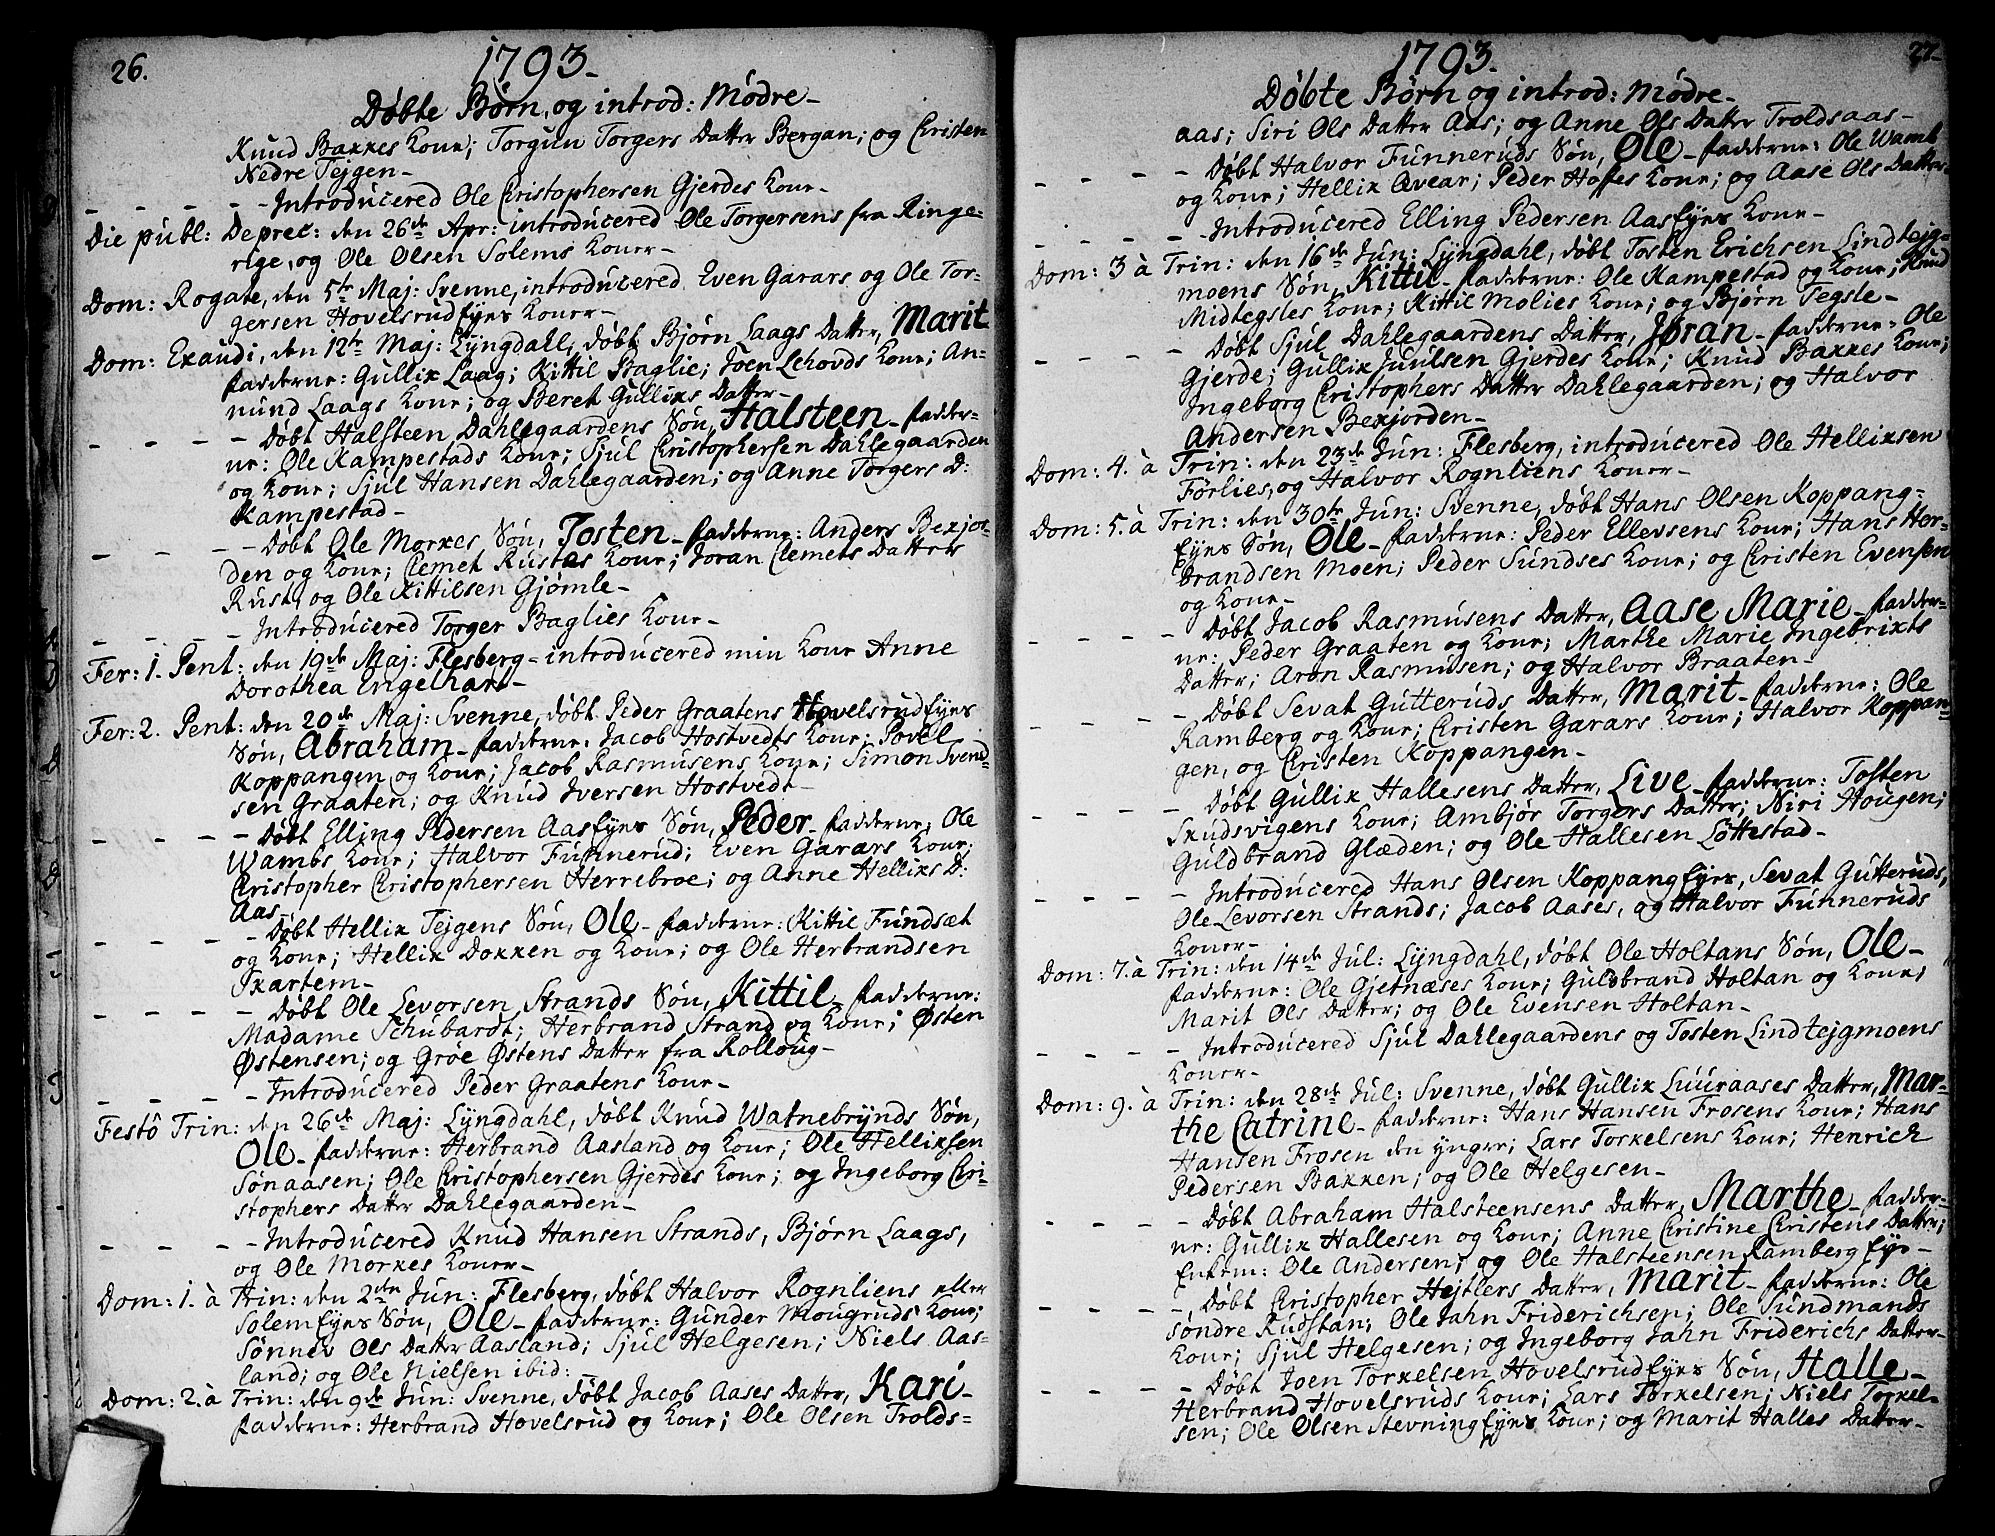 26.
1793.
Døbte Børn, og introd: Mødre_
Knud Bakkes Kone; Torgun Torgers Datter Bergan; og Christen
Nedre Tejgen_
_ _ _ _ _ Introducered Ole Christophersen Gjerdes Kone_
Die publ: Deprec: den 26de Apr: introducered Ole Torgersens fra Ringe=
rige, og Ole Olsen Solems Koner_
Dom: Rogate, den 5te Maj: Svenne, introducered Even Garaas og Ole Tor=
gersen Hovelsrud Ejes Koner_
Dom: Exaudi, den 12te Maj: Lyngdahl, døbt Bjørn Laags Datter, Marit
fadderne: Gullik Laag; Kittil Baglie; Joen Lehovds Kone; An=
nund Laags Kone; og Beret Gulliks Datter_
_ _ _ _ Døbt Halsteen Dahlegaardens Søn, Halsteen_ fadder=
ne: Ole Kampestads Kone; Sjul Christophersen Dahlegaarden
og Kone; Sjul Hansen Dahlegaarden; og Anne Torgers D:
Kampestad_
_ _ _ _ Døbt Ole Morkes Søn, Tosten_ fadderne: Anders Bekjor=
den og Kone; Clemet Rustes Kone; Joran Clemets Datter
Rust, og Ole Kittilsen Gjømle_
_ _ _ _ _ Introducered Torger Baglies Kone_
Fer: 1. Pent: den 19de Maj: Flesberg_ introducered min Kone Anne
Dorothea Engelhart_
Fer: 2. Pent: den 20de Maj: Svenne, døbt Peder Graatens Hovelsrud Ejes
Søn, Abraham_ fadderne: Jacob Hostvedts Kone; Povel
Koppangen og Kone; Jacob Rasmusens Kone; Simon Svend=
sen Graaten; og Knud Iversen Hostvedt_
_ _ _ _ Døbt Elling Pedersen Aas Ejes Søn, Peder_ fadderne: Ole
Wambs Kone; Halvor Funnerud; Even Garaas Kone;
Christopher Christophersen Herrebroe; og Anne Helliks D:
Aas_
_ _ _ _ Døbt Hellik Tejgens Søn, Ole_ fadderne: Kittil Fundsæt
og Kone; Hellik Dokken og Kone; og Ole Herbrandsen
Skartem_
_ _ _ _ Døbt Ole Levorsen Strands Søn, Kittil_ fadderne:
Madame Schubardt; Herbrand Strand og Kone; Østen
Østensen; og Grøe Østens Datter fra Rolloug_
_ _ _ _ _ Introducered Peder Graatens Kone_
Festô Trin: den 26de Maj: Lyngdahl, døbt Knud Watnebrynds Søn,
Ole_ fadderne: Herbrand Aasland og Kone; Ole Helliksen
Sønaasen; Ole Christophersen Gjerdes Kone; og Ingeborg Chri=
stophers Datter Dahlegaarden_
_ _ _ _ Introducered Knud Hansen Strands, Bjørn Laags,
og Ole Morkes Koner_
Dom: 1. à Trin: den 2den Jun: Flesberg, døbt Halvor Rognliens eller
Solem Ejes Søn, Ole_ fadderne: Gunder Mougruds Kone;
Sønnev Ols Datter Aasland; Sjul Helgesen; Niels Aas=
land; og Ole Nielsen ibid:
Dom: 2. à Trin: den 9de Jun: Svenne, døbt Jacob Aases Datter, Kari_
fadderne: Herbrand Hovelsrud og Kone; Ole Olsen Trolds=
27_
1793.
Døbte Børn og introd: Mødre_
aas; Siri Ols Datter Aas; og Anne Ols Datter Troldsaas_
_ _ _ _ Døbt Halvor Funneruds Søn, Ole_ fadderne: Ole Wamb
og Kone; Hellik Qvear; Peder Hoffes Kone; og Aase Ols Datter
_ _ _ _ _ Introducered Elling Pedersen Aas Ejes Kone_
Dom: 3 à Trin: den 16de Jun: Lyngdahl, døbt Tosten Erichsen Lindtejg=
moens Søn, Kittil_ fadderne: Ole Kampestad og Kone; Knud
Midtegsles Kone; Kittil Molies Kone; og Bjørn Tegsle_
_ _ _ _ Døbt Sjul Dahlegaardens Datter, Joran_ fadderne: Ole
Gjerde; Gullik Juulsen Gjerdes Kone; Knud Bakkes Kone;
Ingeborg Christophers Datter Dahlegaarden; og Halvor
Andersen Bekjorden_
Dom: 4. à Trin: den 23de Jun: Flesberg, introducered Ole Helliksen
Førlies, og Halvor Rognliens Koner_
Dom: 5. à Trin: den 30te Jun: Svenne, døbt Hans Olsen Koppang=
Ejes Søn, Ole_ fadderne: Peder Ellevsens Kone; Hans Her=
brandsen Moen; Peder Sundses Kone; og Christen Evensen
og Kone_
_ _ _ _ Døbt Jacob Rasmusens Datter, Aase Marie_ fadder=
ne: Peder Graaten og Kone; Marthe Marie Ingebrikts
Datter; Aron Rasmusen; og Halvor Braaten_
_ _ _ _ Døbt Sevat Gutteruds Datter, Marit_ fadderne: Ole
Ramberg og Kone; Christen Garaas Kone; Halvor Koppan=
gen, og Christen Koppangen_
_ _ _ _ Døbt Gullik Hallesens Datter, Live_ fadderne: Tosten
Skudsvigens Kone; Ambjør Torgers Datter; Niri Hougen;
Guldbrand Glæden; og Ole Hallesen Løttestad_
_ _ _ _ Introducered Hans Olsen Koppang Ejes, Sevat Gutteruds,
Ole Levorsen Strands; Jacob Aases, og Halvor Funneruds
Koner_
Dom: 7. à Trin: den 14de Jul: Lyngdahl, døbt Ole Holtans Søn, Ole_
fadderne: Ole Gjetnæses Kone; Guldbrand Holtan og Kone;
Marit Ols Datter; og Ole Evensen Holtan_
_ _ _ _ Introducered Sjul Dahlegaardens og Tosten Lindtejgmoens
Koner_
Dom: 9. à Trin: den 28de Jul: Svenne, døbt Gullik Luuraases Datter, Mar=
the Catrine_ fadderne: Hans Hansen Frosens Kone; Hans
Hansen Frosen den yngre; Lars Torkelsens Kone; Henrich
Pedersen Bakken; og Ole Helgesen_
_ _ _ _ Døbt Abraham Halsteensens Datter, Marthe_ fadder=
ne: Gullik Hallesen og Kone; Anne Christine Christens Datter;
Enkem: Ole Andersen; og Ole Halsteensen Ramberg Eje_
_ _ _ _ Døbt Christopher Hejtlers Datter, Marit_ fadderne: Ole
søndre Rudstan; Ole Jahn Friderichsen; Ole Sundmands
Kone; Sjul Helgesen; og Ingeborg Jahn Friderichs Datter_
_ _ _ _ Døbt Joen Torkelsen Hovelsrud Ejes Søn, Halle_
Herbrand Hovelsruds Kone; Lars Torkelsen; Niels Torkel=
sen; Ole Olsen Stevning Ejes Kone; og Marit Halles Datter_